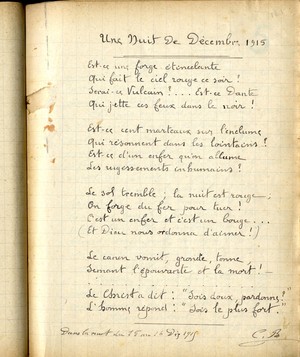 Une Nuit de Décembre 1915
Est-ce une forge étincelante
Qui fait le ciel rouge ce soir !
Serai-ce Vulcain !.... Est-ce Dante
Qui jette ces feux dans le noir !
Est-ce cent marteaux sur l'enclume
Qui résonnent dans les lointains !
Est-ce d'un enfer qu'on allume
Les rugissements inhumains !
Le sol tremble ; la nuit est rouge
On forge du fer pour tuer.
C'est un enfer et c'est un bouge...
(Et Dieu nous ordonna d'aimer !)
Le canon vomit, gronde, tonne,
Semant l'épouvante et la mort ! -
Le Christ a dit : "Sois doux, pardonne !"
L'homme répond : "Sois le plus fort."
Dans la nuit du 15 au 16 Dec 1915
C. B.